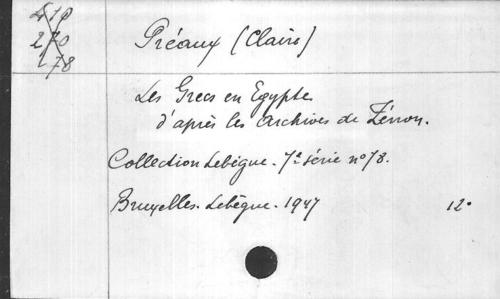 418
270
178
Préaux (Claire)
Les Grecs en Egypte
d'après les Archives de Zénon.
Collection Lebègue. 7e série n° 78.
Bruxelles. Lebègue. 1947 12°